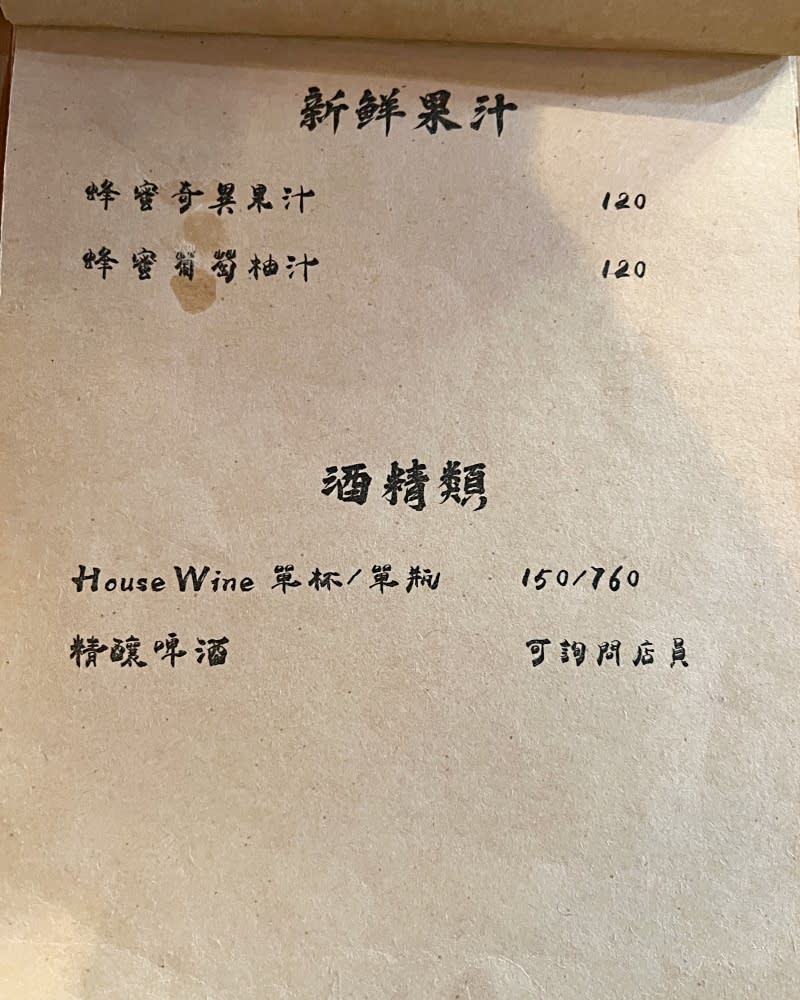 新鮮果汁
蜂蜜奇異果汁 120
蜂蜜葡萄柚汁 120
酒精類
House Wine 單杯/單瓶 150/760
精釀啤酒 可詢問店員